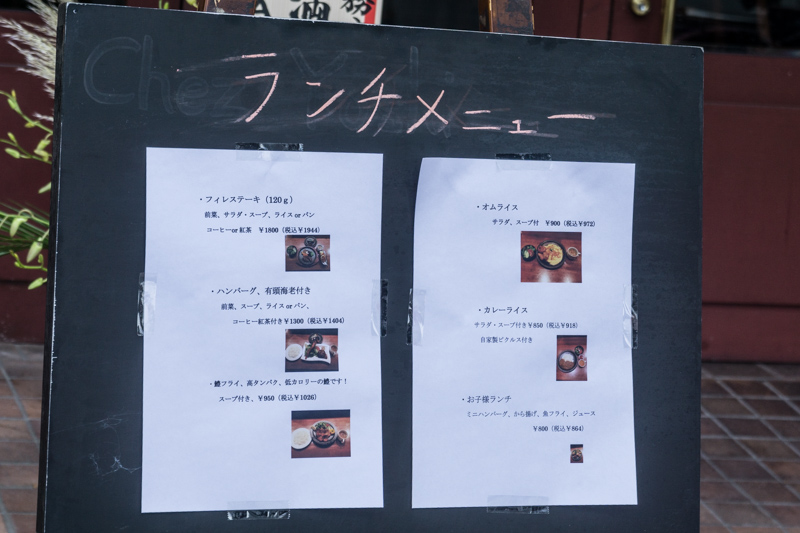 ランチメニュー
・フィレステーキ（120ｇ）
前菜、サラダ・スープ、ライス or パン
コーヒーor 紅茶　￥1800（税込￥1944）
・ハンバーグ、有頭海老付き
前菜、スープ、ライス or パン、
コーヒー紅茶付き￥1300（税込￥1404）
・鱧フライ、高タンパク、低カロリーの鱧です！
スープ付き、￥950（税込￥1026）
・オムライス
サラダ、スープ付　￥900（税込￥972）
・カレーライス
サラダ・スープ付き￥850（税込￥918）
自家製ピクルス付き
・お子様ランチ
ミニハンバーグ、から揚げ、魚フライ、ジュース
￥800（税込￥864）